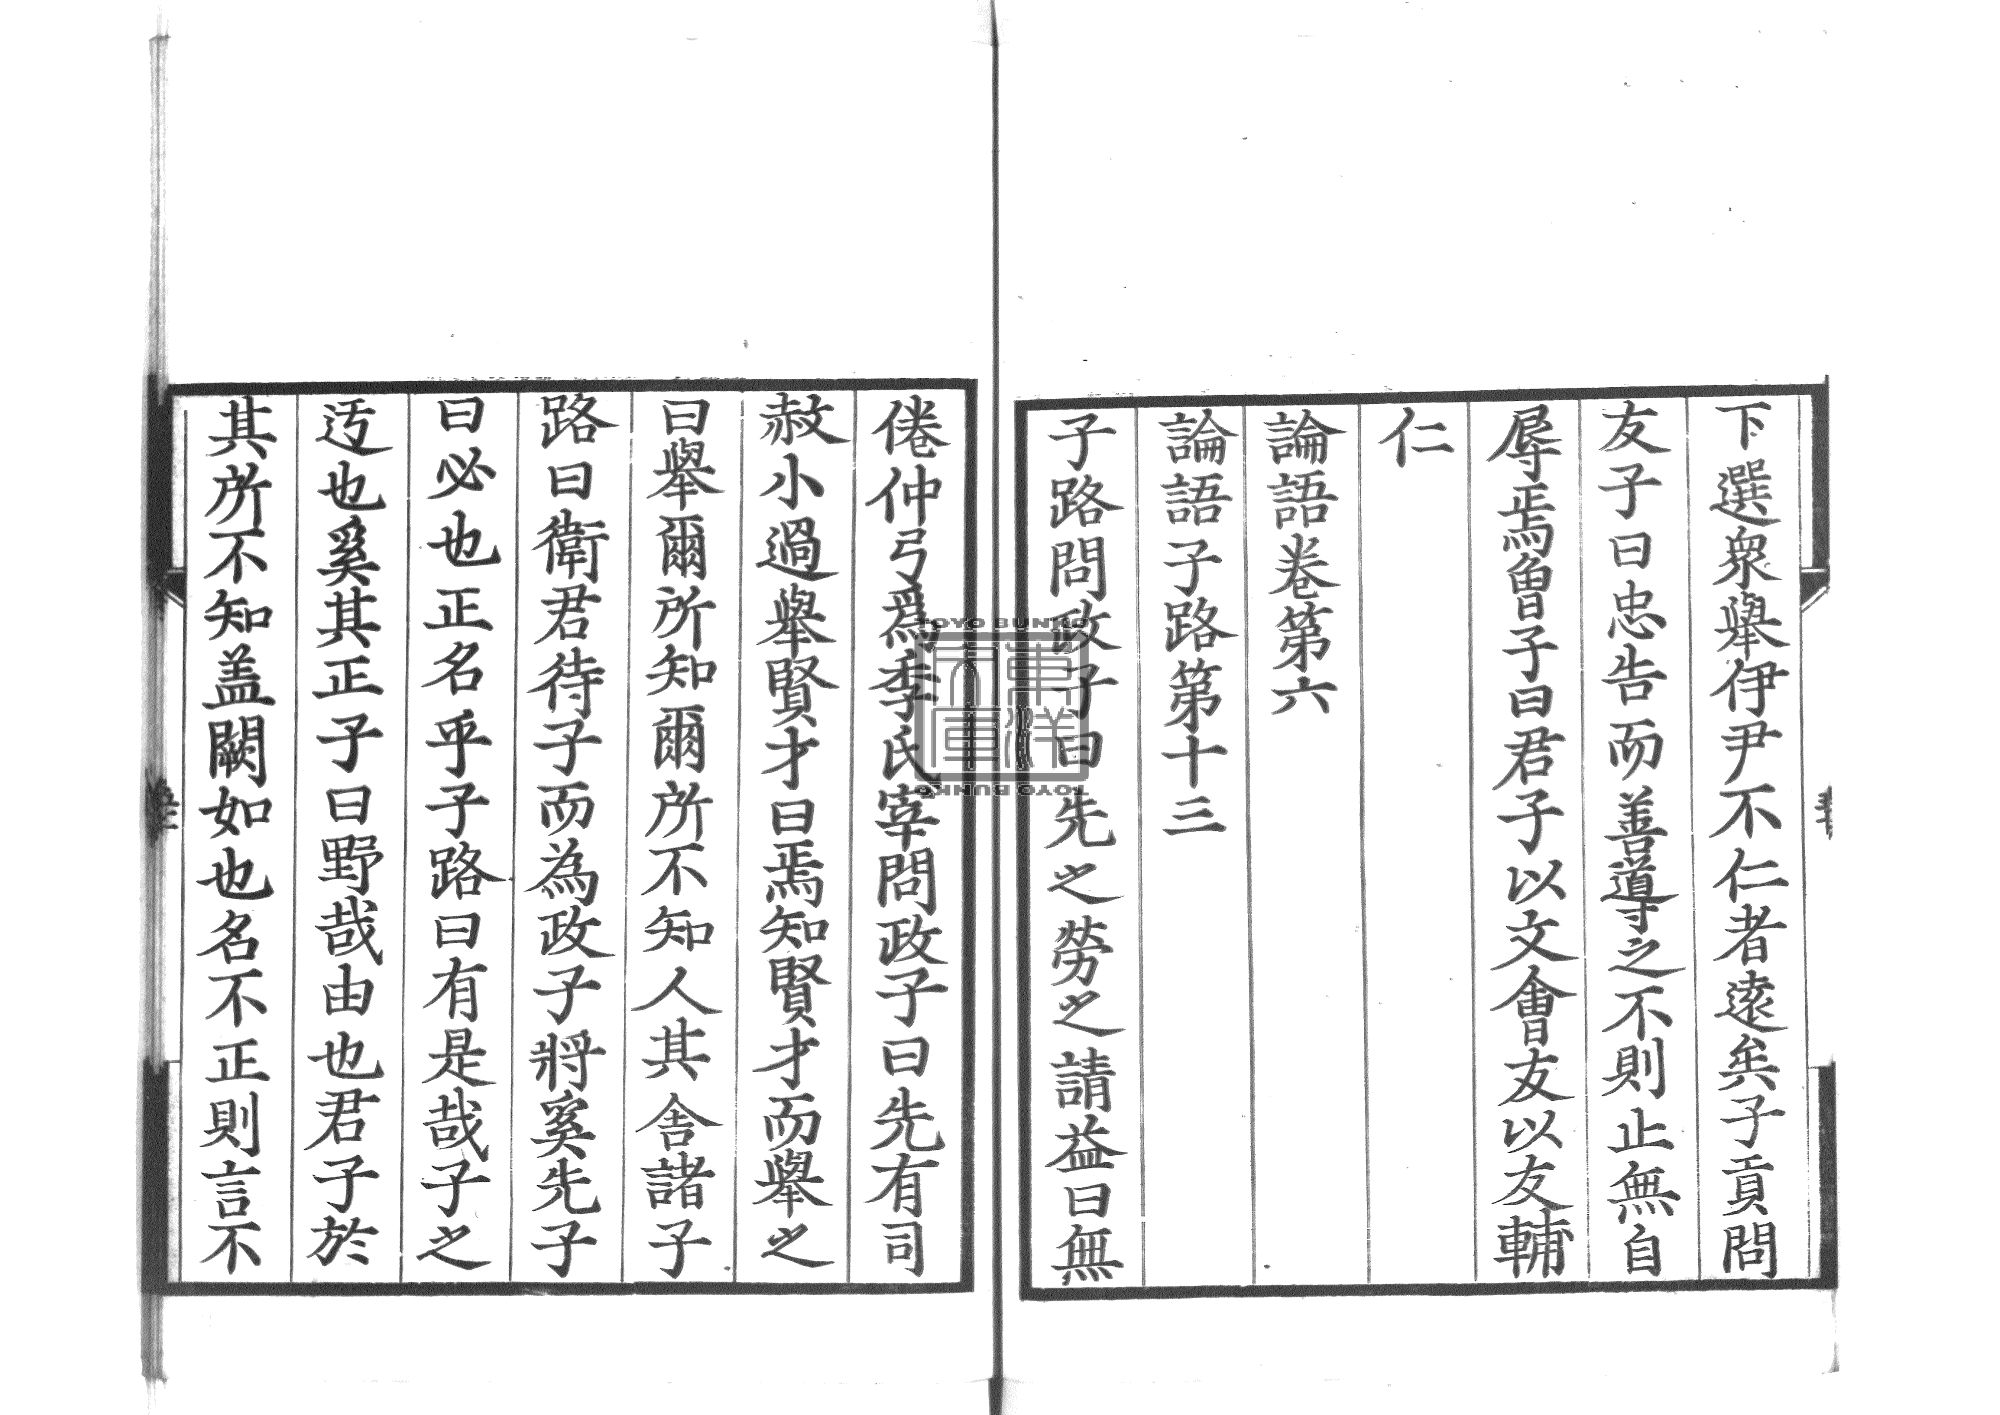 下選衆舉伊尹不仁者遠矣子貢問
友子曰忠告而善導之不則止無自
辱焉曾子曰君子以文會友以友輔
仁
論語卷第六
論語子路第十三
子路問政子曰先之勞之請益曰無
倦仲弓爲季氏宰問政子曰先有司
赦小過舉賢才曰焉知賢才而舉之
曰舉爾所知爾所不知人其舍諸子
路曰衛君待子而為政子將奚先子
曰必也正名乎子路曰有是哉子之
迃也奚其正子曰野哉由也君子於
其所不知盖闕如也名不正則言不
TOYO BUNKO
東洋文庫
TOYO BUNKO